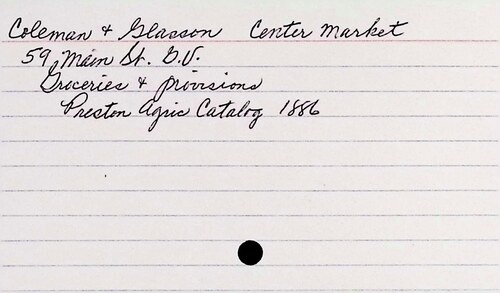 Coleman & Glasson Center Market
59 Main St. G.V.
Groceries & provisions
Preston Agric Catalog 1886